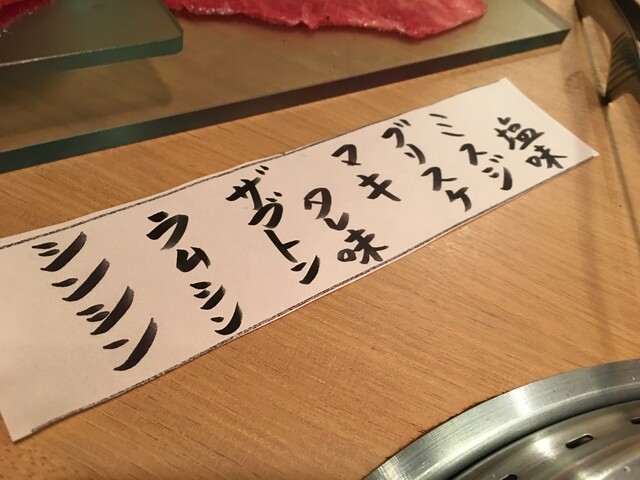 塩味
ミスジ
ブリスケ
マキ
タレ味
ザブトン
ラムシン
シンシン